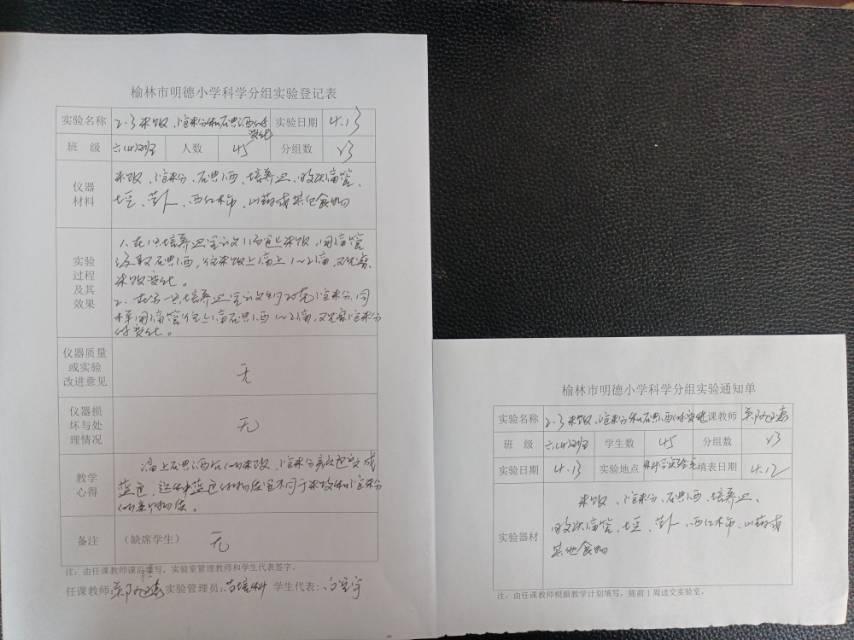 榆林市明德小学科学分组实验登记表
实验名称 2.3米饭、淀粉和碘酒的变化 实验日期 4.13
班 级 六(4)班 人数 45 分组数 23
仪器材料 米饭、淀粉、碘酒、培养皿、吸水滴管、
土豆、萝卜、西红柿、山药或其他食物
实验过程及其效果
1.在一只培养皿里放入1汤匙米饭,用滴管
吸取碘酒,往米饭上滴上1~2滴,观察
米饭变化。
2.在另一只培养皿里放入 淀粉,同
样用滴管往上滴碘酒1~2滴,观察淀粉
变化。
仪器质量或实验改进意见 无
仪器损坏与处理情况 无
教学心得 滴上碘酒后的米饭、淀粉颜色变成
蓝色,这种蓝色的物质是不同于米饭和淀粉
的新物质。
备注 (缺席学生) 无
注:由任课教师课后填写,实验室管理教师和学生代表签字。
任课教师: 实验管理员: 学生代表:
榆林市明德小学科学分组实验通知单
实验名称 2.3米饭、淀粉和碘酒的变化 任课教师
班 级 六(4)班 学生数 45 分组数 23
实验日期 4.13 实验地点 科学实验室 填表日期 4.12
实验器材 米饭、淀粉、碘酒、培养皿、
吸水滴管、土豆、萝卜、西红柿、山药或
其他食物
注:由任课教师根据教学计划填写,提前1周送交实验室。